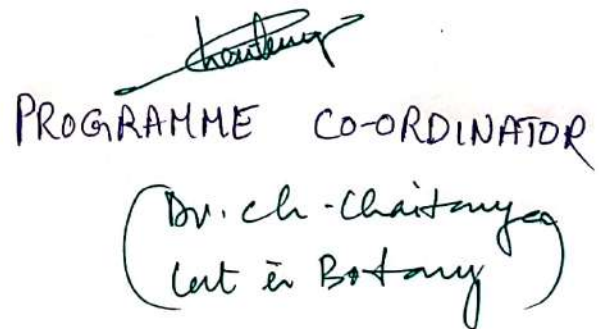 PROGRAMME CO-ORDINATOR
(Dr. ch-Chaitanya
Lect in Botany)